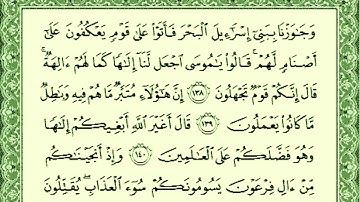 وَجَٰوَزْنَا بِبَنِىٓ إِسْرَٰٓءِيلَ ٱلْبَحْرَ فَأَتَوْا۟ عَلَىٰ قَوْمٍ يَعْكُفُونَ عَلَىٰٓ
أَصْنَامٍ لَّهُمْ ۚ قَالُوا۟ يَٰمُوسَى ٱجْعَل لَّنَآ إِلَٰهًا كَمَا لَهُمْ ءَالِهَةٌ ۚ
قَالَ إِنَّكُمْ قَوْمٌ تَجْهَلُونَ ١٣٨ إِنَّ هَٰٓؤُلَآءِ مُتَبَّرٌ مَّا هُمْ فِيهِ وَبَٰطِلٌ
مَّا كَانُوا۟ يَعْمَلُونَ ١٣٩ قَالَ أَغَيْرَ ٱللَّهِ أَبْغِيكُمْ إِلَٰهًا
وَهُوَ فَضَّلَكُمْ عَلَى ٱلْعَٰلَمِينَ ١٤٠ وَإِذْ أَنجَيْنَٰكُم
مِّنْ ءَالِ فِرْعَوْنَ يَسُومُونَكُمْ سُوٓءَ ٱلْعَذَابِ ۖ يُقَتِّلُونَ